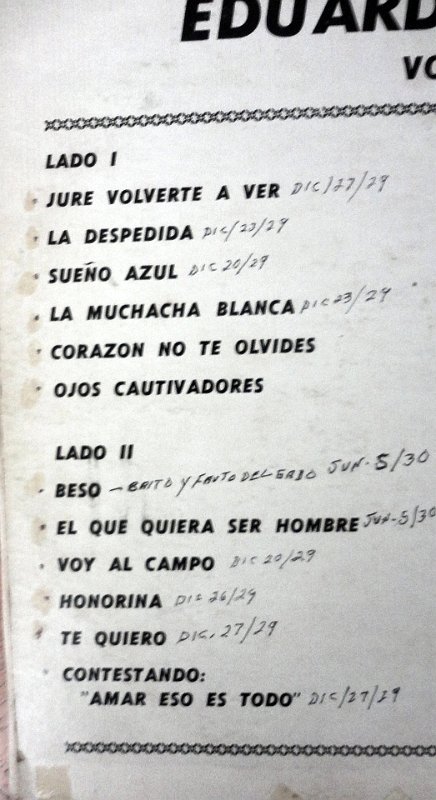 EDUARD
VO
LADO I
JURE VOLVERTE A VER DIC/27/29
LA DESPEDIDA DIC/23/29
SUEÑO AZUL DIC 20/29
LA MUCHACHA BLANCA DIC 23/29
CORAZON NO TE OLVIDES
OJOS CAUTIVADORES
LADO II
BESO - BRITO Y FRUTO DEL GADO JUN- 5/30
EL QUE QUIERA SER HOMBRE JUN-5/30
VOY AL CAMPO DIC 20/29
HONORINA DIC 26/29
TE QUIERO DIC. 27/29
CONTESTANDO:
"AMAR ESO ES TODO" DIC/27/29